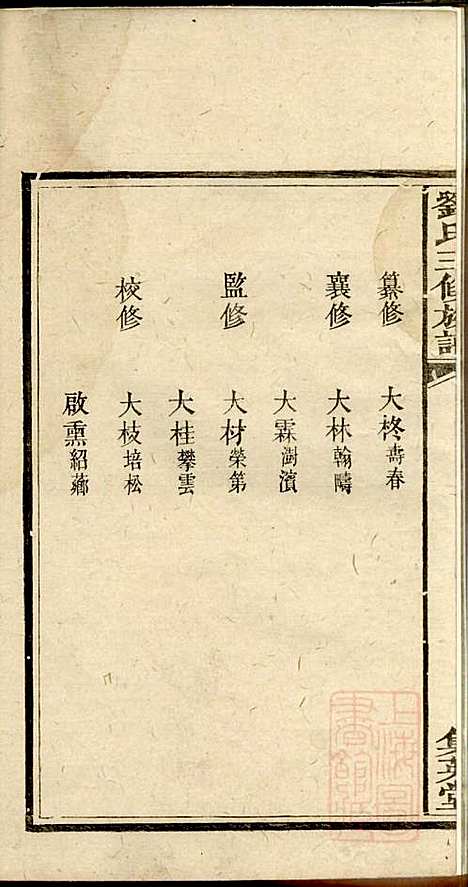 劉氏三修族譜
集英堂
纂修 大柊壽春
襄修 大林翰疇
大霖澍濱
監修 大材榮第
大桂攀雲
校修 大枝培松
啟熏紹薌
上海圖書館藏